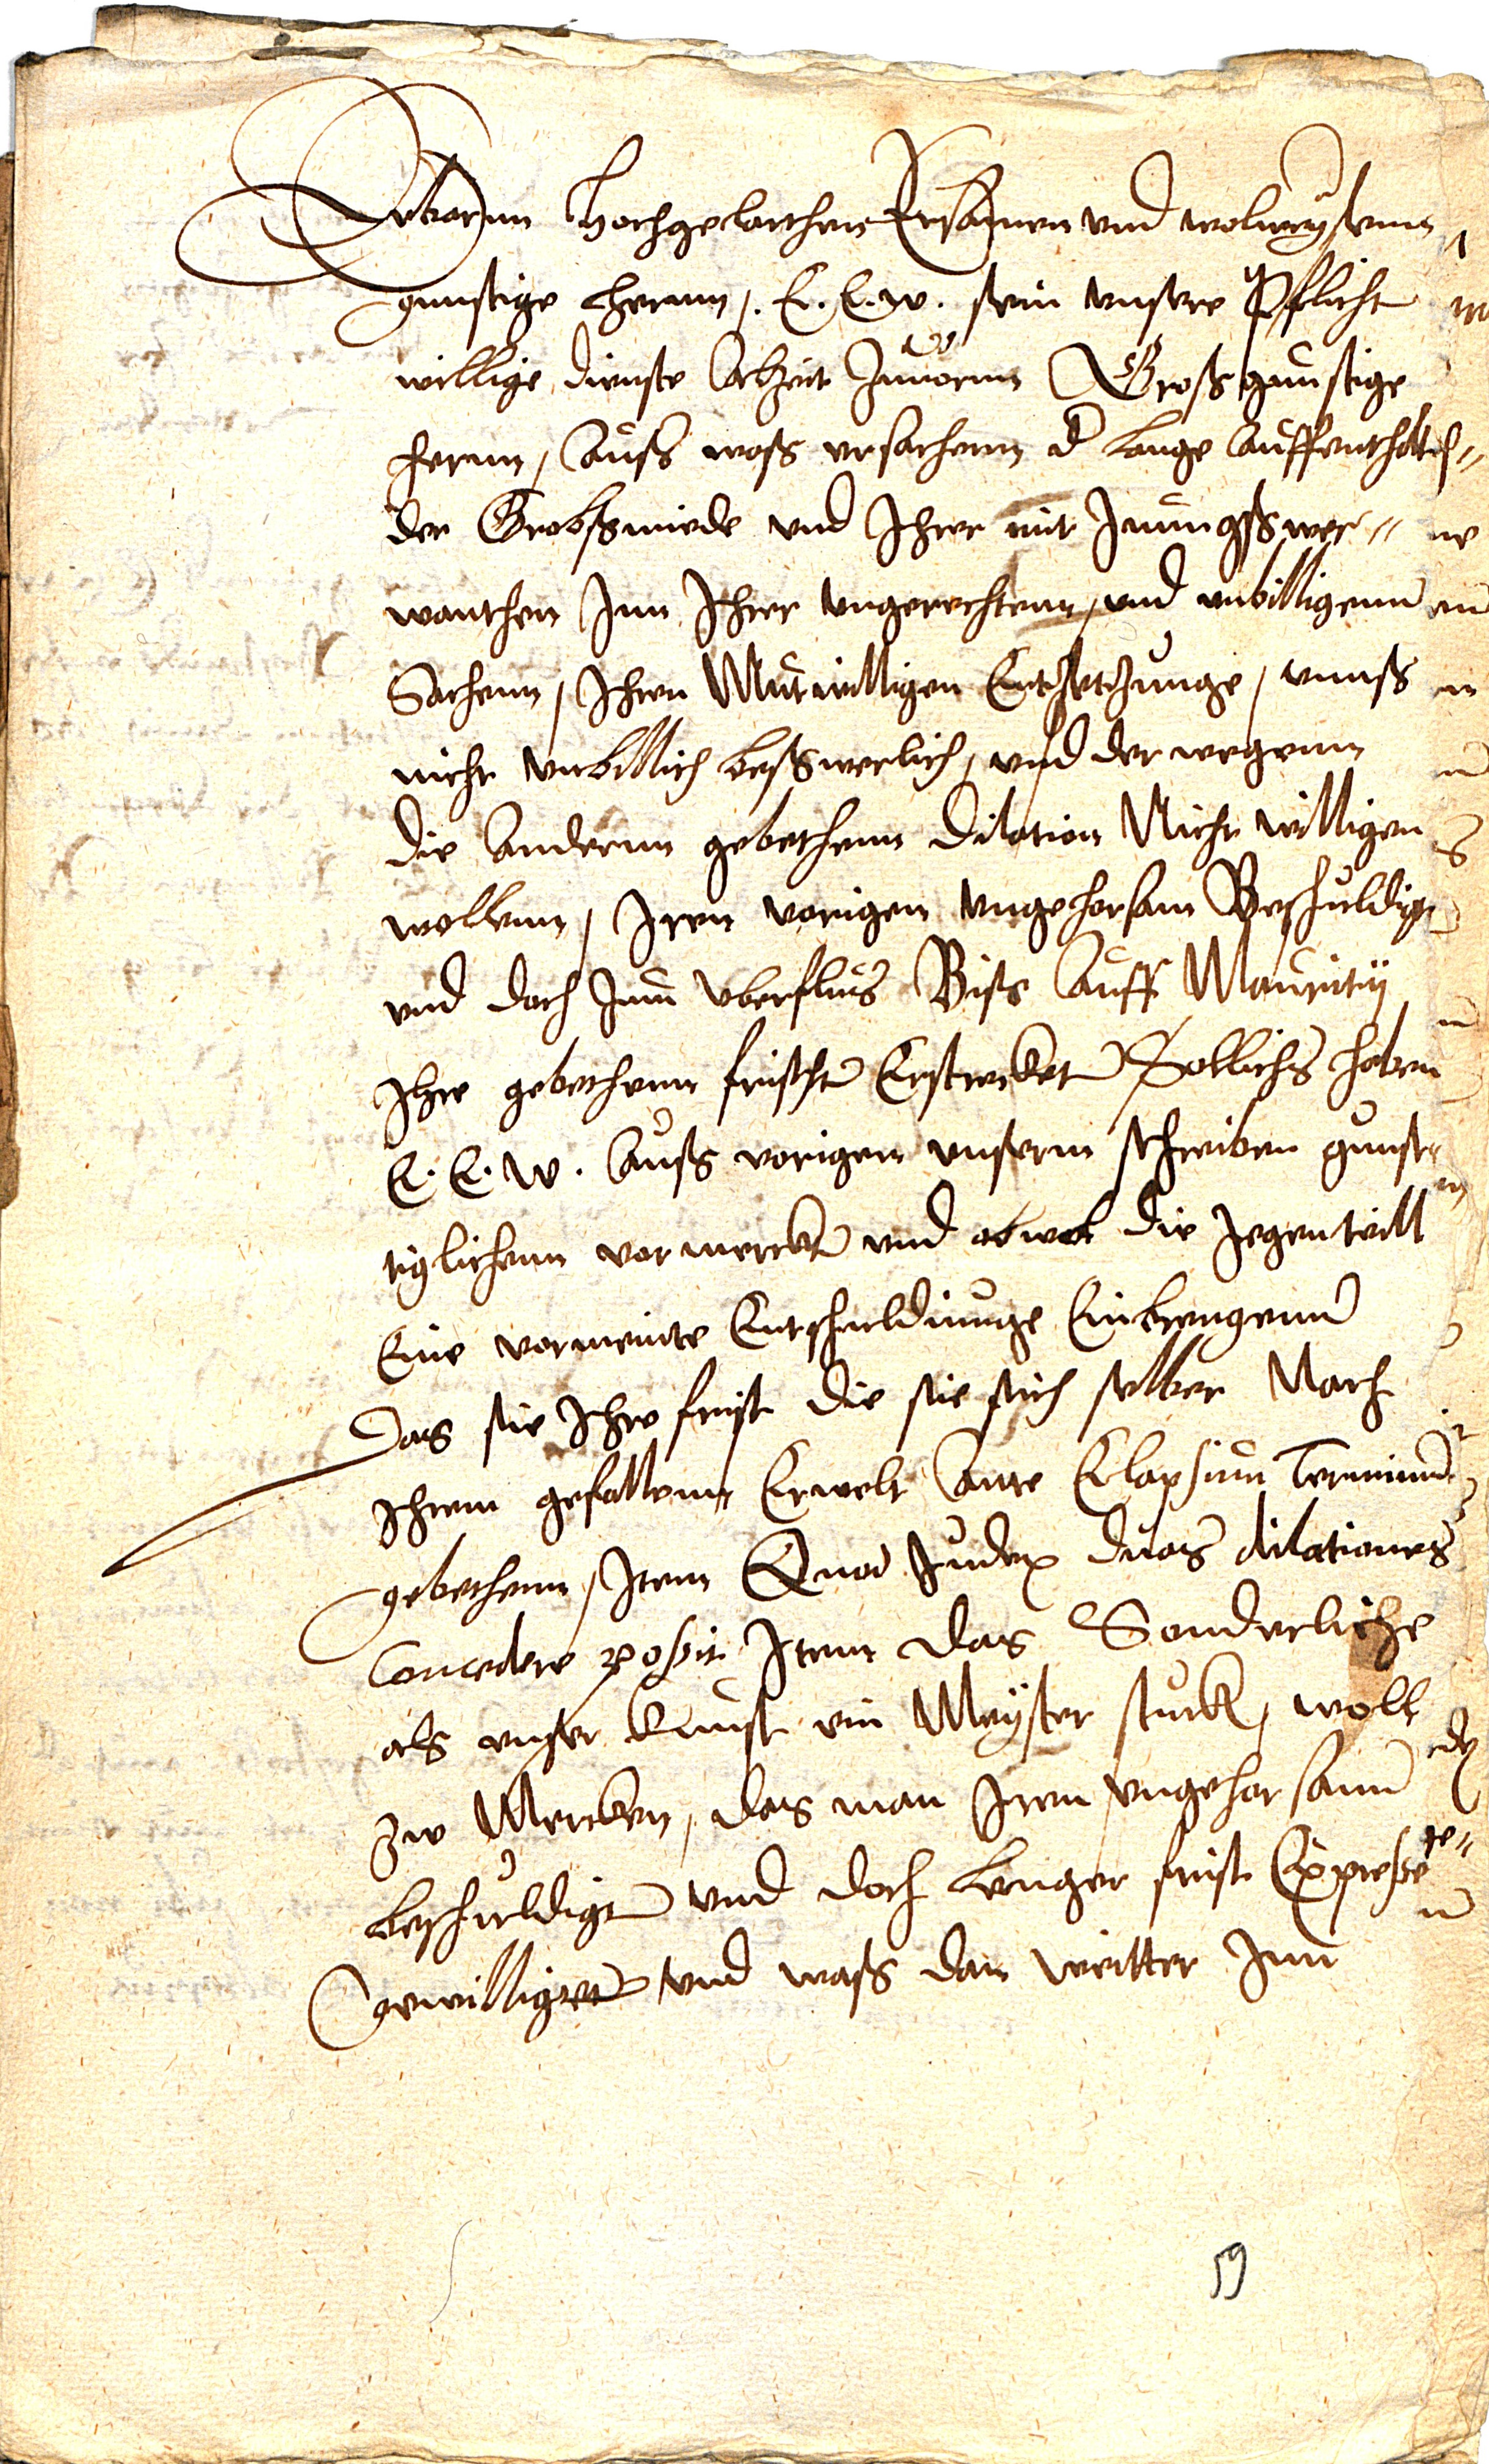 Erbarnn Hochgelarthen Ersamen vnd wolweysenn
gunstige Herrnn, E. E. w. sein vnsere Pflicht
willige dienste Alzeit Zuuornn Großgunstige
Hernn, Auß waß vrsachenn d lange Auffenthaltt
der Grobsmiede vnd Ihrer mit Innungßwer=
wanthen Inn Ihrer vngerechtenn, vnd vnbilligenn
Sachenn, Ihren Mutwilligen vnnß
nicht vnbillich beßwerlich, vnd der wegenn
die Andernn gebethenn Dilation Nicht willigen
wollenn, Iren vorigen vngehorsam Beschuldigt
vnd doch Inn vberflus Biß Auff Maurity
Ihre gebethenn frischt Erstrecket Sollichs haben
E. E. W. Auß vorigen vnserm schreiben gunst
tiglichenn vormerckt vnd obwol die Jegenteill
Eine vormeinte Entschuldiunge Einbrengenn
Das sie Ihre frist die sie sich selber Nach
Ihrem gefallenn Erwelt Ante Elapsum Terminum
gebethenn, Item Quod Judex duas dilationes
Concedere possit Item das Sonderliche
als vnser Kunst ein Meyster stuck, woll
Zw Mercken, das man Iren vngehorsam
beschuldigt vnd doch lenger frist Expresse
Gewilliget vnd waß dan weitter Inn
59